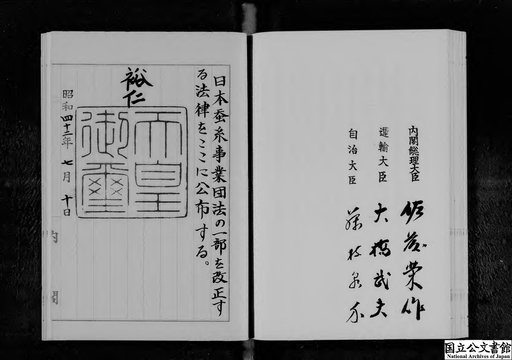 内閣総理大臣 佐藤榮作
運輸大臣 大橋武夫
自治大臣 藤枝泉介
日本蚕糸事業団法の一部を改正す
る法律をここに公布する。
裕仁
天皇
御璽
昭和四十二年 七月 十日
内閣
国立公文書館
National Archives of Japan